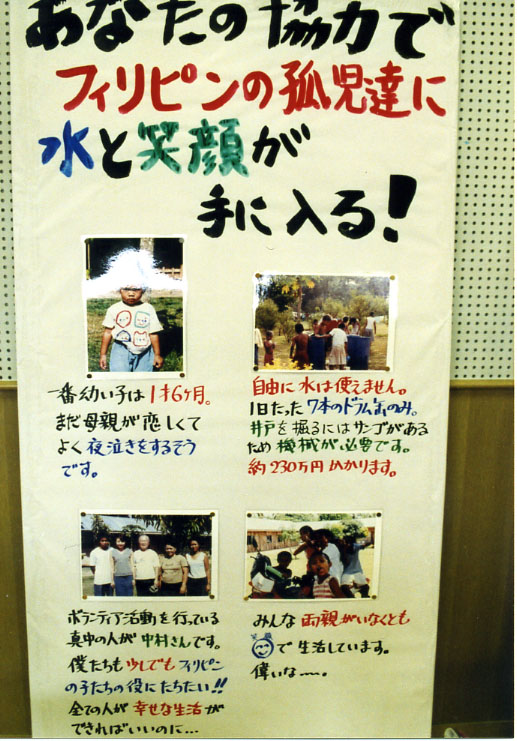 あなたの協力で
フィリピンの孤児達に
水と笑顔が
手に入る!
一番幼い子は1才6ヶ月。
まだ母親が恋しくて
よく夜泣きをするそう
です。
自由に水は使えません。
1日たった7本のドラム缶のみ。
井戸を掘るにはサンゴがある
ため機械が必要です。
約230万円かかります。
ボランティア活動を行っている
真中の人が中村さんです。
僕たちも少しでもフィリピン
の子たちの役にたちたい!!
全ての人が幸せな生活が
できればいいのに…
みんな両親がいなくとも
で生活しています。
偉いな〜。